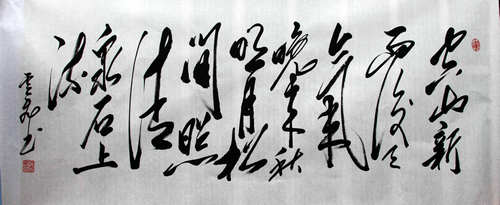 空山新
雨後天
氣
晚来秋
明月松
間照
清
泉石上
流